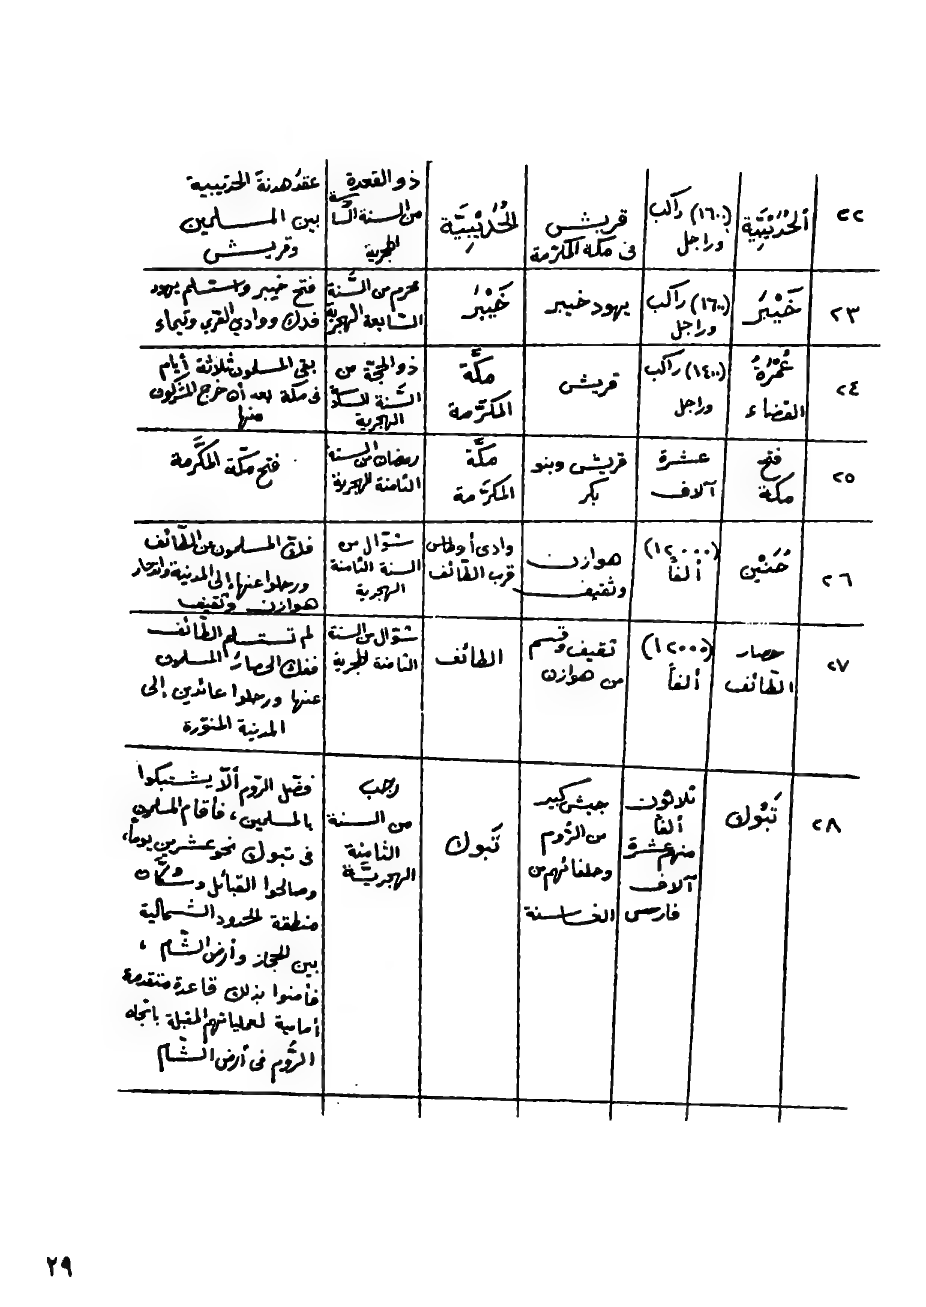 ٢٢
الحُدَيْبِيَّة
(١٦٠٠) راكب
وراجل
قريش
فى مكة المكرّمة
الحُدَيْبِيَّة
ذو القعدة
من السنة السّا
دسة
الهجرية
عقد هدنة الحديبية
بين المسلمين
وقريش
٢٣
خَيْبَر
(١٦٠٠) راكب
وراجل
يهود خيبر
خَيْبَر
محرم من السَّنة
السّابعة الهجريّة
فتح خيبر واستسلم يهود
فدك ووادي القرى وتيماء
٢٤
عُمْرَةُ
القضاء
(١٤٠٠) راكب
وراجل
قريش
مكَّة
المكرّمة
ذو الحجّة من
السَّنة السابعة
الهجرية
بقى المسلمون ثلاثة أيام
فى مكة بعد أن خرج المشركون
منها
٢٥
فتح
مكة
عشرة
آلاف
قريش وبنو
بكر
مكَّة
المكرّمة
رمضان من السنة
الثامنة الهجرية
فتح مكّة المكرَّمة
٢٦
حُنَيْن
(١٢٠٠٠)
ألفاً
هوازن
وثقيف
وادى أوطاس
قرب الطّائف
شوّال من
السنة الثامنة
الهجرية
فكّ المسلمون عن الطّائف
ورحلوا عنها إلى المدينة واندحار
هوازن وثقيف
٢٧
حصار
الطّائف
(١٢٠٠٠)
ألفاً
ثقيف وقسم
من هوازن
الطائف
شوّال من السنة
الثامنة الهجرية
لم تستسلم الطّائف
ففك الحصارَ المسلمون
عنها ورحلوا عائدين إلى
المدينة المنوّرة
٢٨
تَبُوك
ثلاثون
ألفاً
منهم عشرة
آلاف
فارس
جيش كبير
من الرُّوم
وحلفائهم من
الغساسنة
تَبوك
رجب
من السنة
الثامنة
الهجريّة
فضّل الرّوم ألاّ يشتبكوا
بالمسلمين، فأقام المسلمون
فى تبوك نحو عشرين يوماً،
وصالحوا القبائل وسُكَّان
منطقة الحدود الشمالية
بين الحجاز وأرض الشّام ،
فأمنوا بذلك قاعدة متقدمة
أمامية لعملياتهم المقبلة باتّجاه
الرُّوم فى أرض الشَّام
٢٩